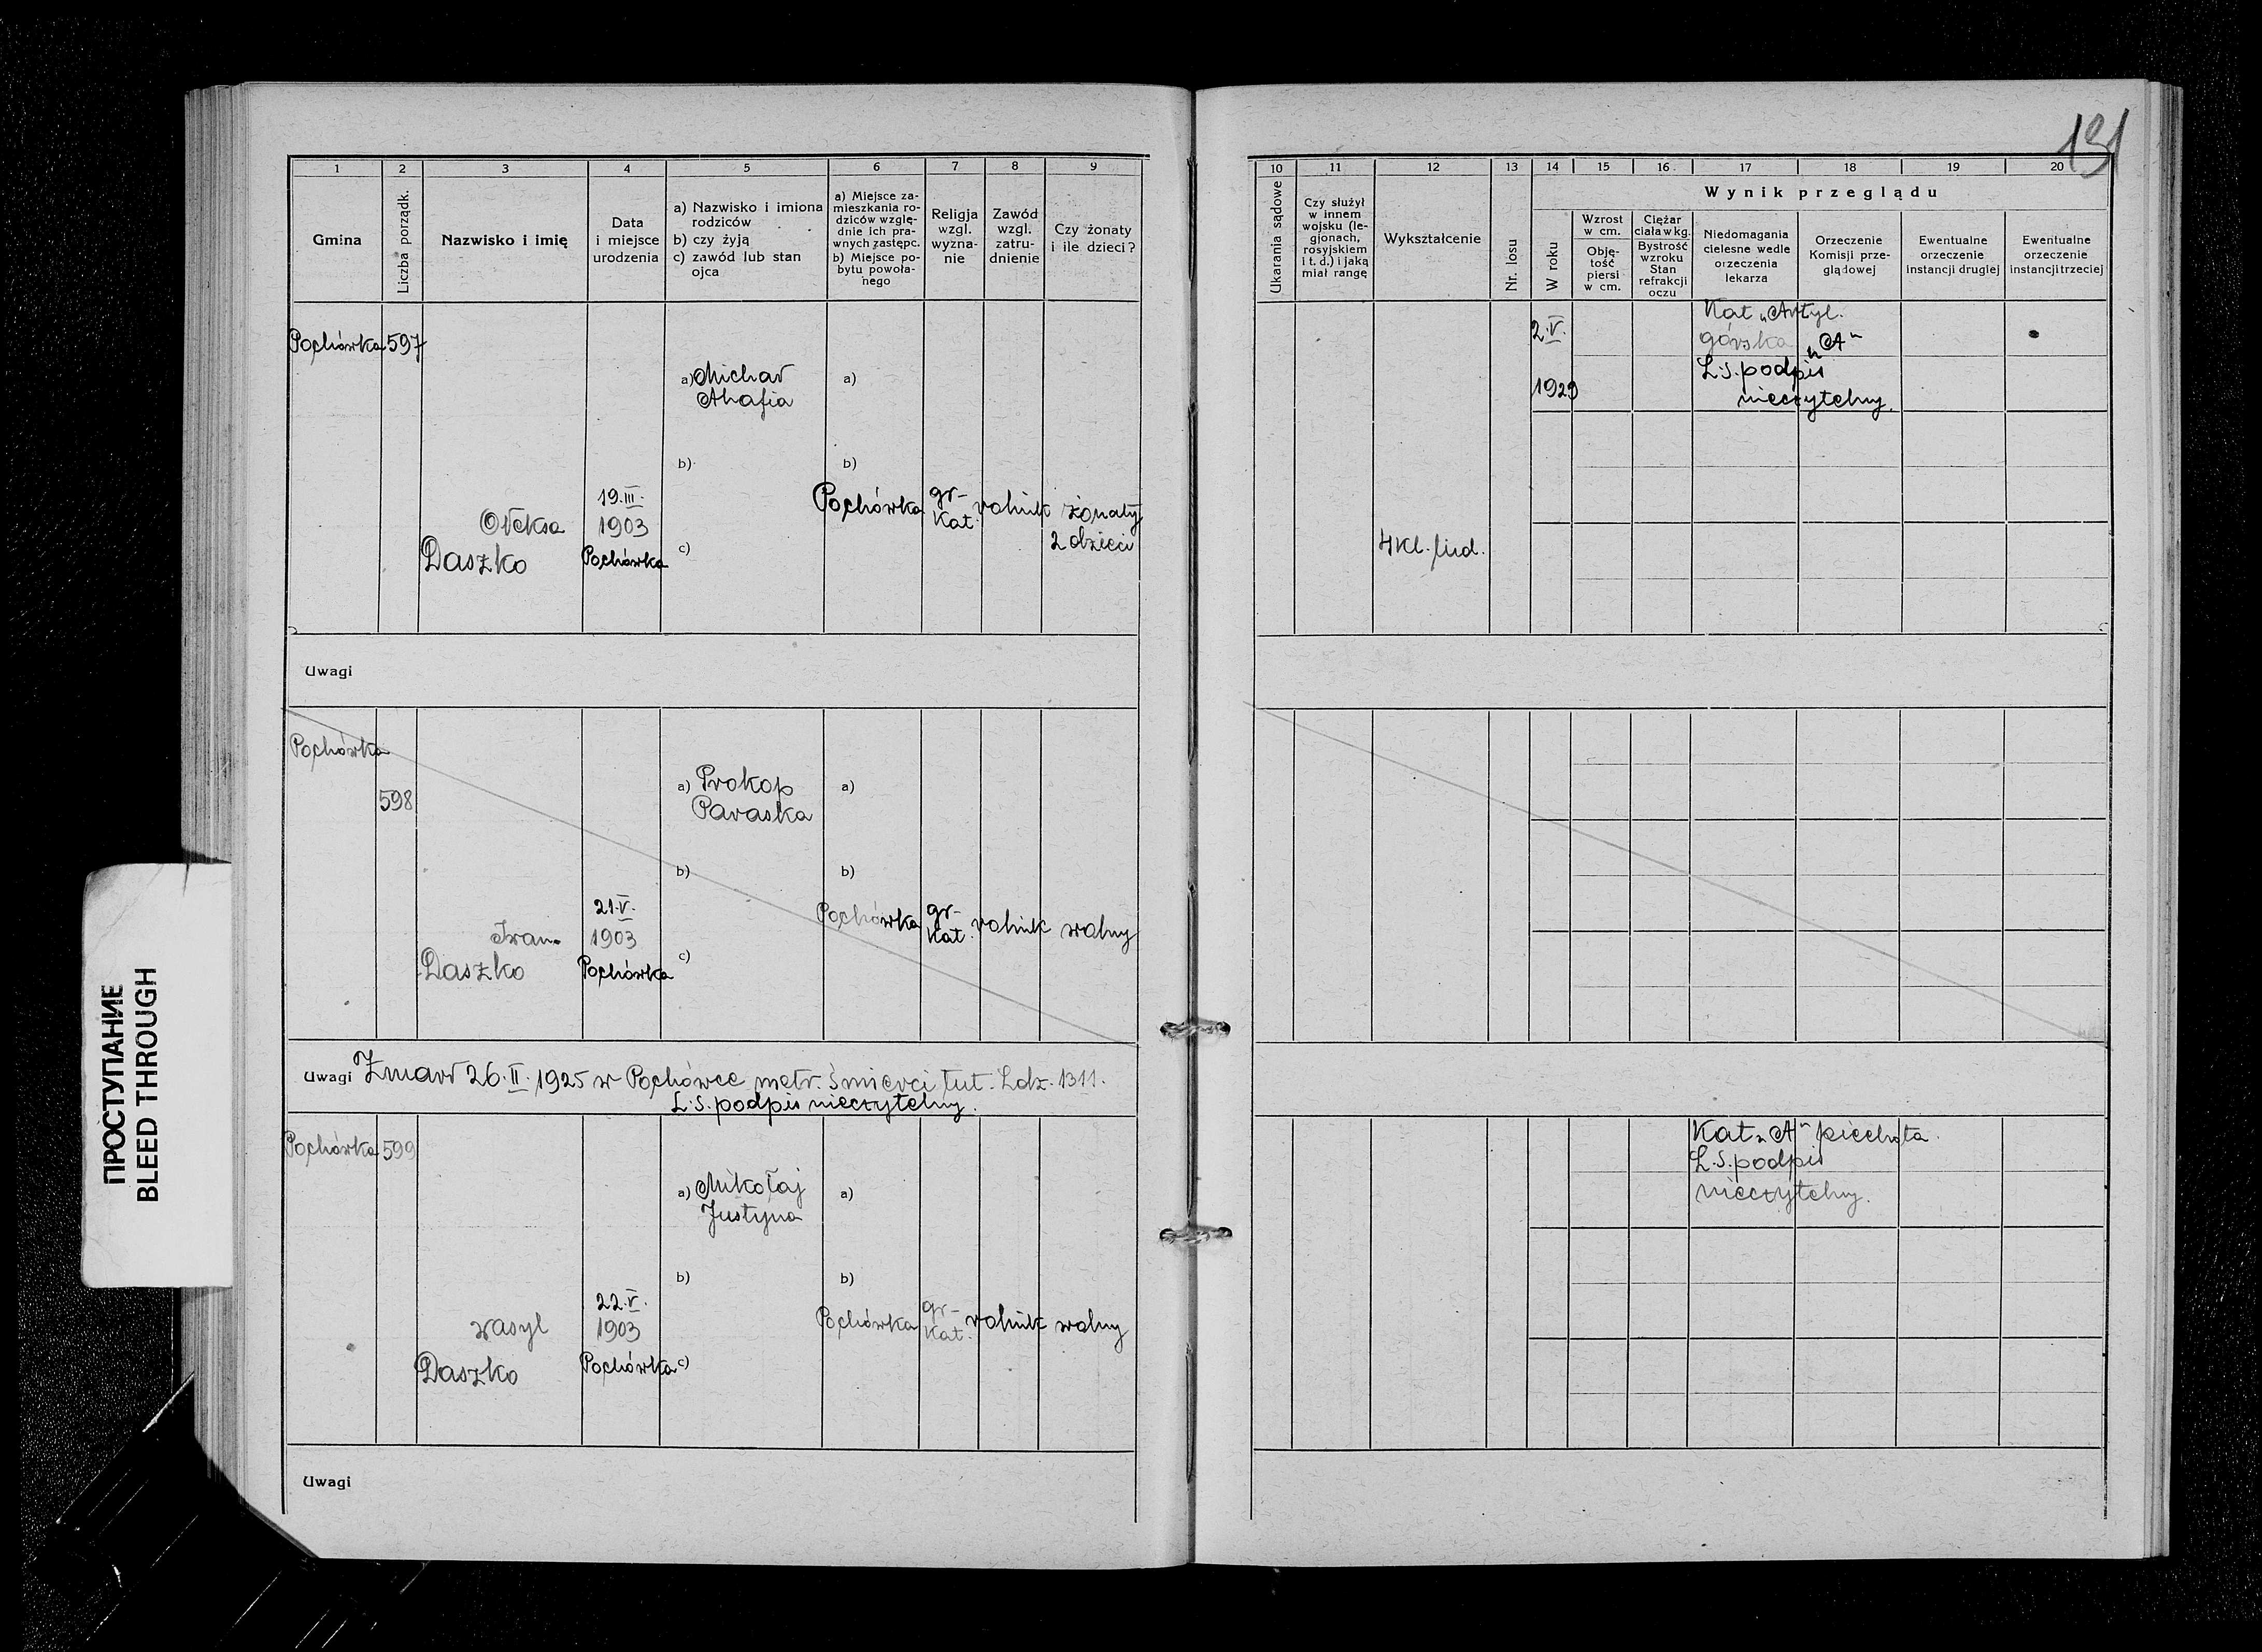 191
1 2 3 4 5 6 7 8 9
Gmina
Liczba porządk.
Nazwisko i imię
Data
i miejsce
urodzenia
a) Nazwisko i imiona
rodziców
b) czy żyją
c) zawód lub stan
ojca
a) Miejsce za-
mieszkania ro-
dziców wzglę-
dnie ich pra-
wnych zastępc.
b) Miejsce po-
bytu powoła-
nego
Religja
wzgl.
wyzna-
nie
Zawód
wzgl.
zatru-
dnienie
Czy żonaty
i ile dzieci?
Pochówka 597
a) Michał
Ahafia
a)
b)
b)
Oleksa
Daszko
19.III.
1903
Pochówka
c)
Pochówka
gr-
kat.
rolnik
żonaty
2 dzieci
Uwagi
Pochówka
598
a) Prokop
Paraska
a)
b)
b)
Iwan
Daszko
21.V.
1903
Pochówka
c)
Pochówka
gr-
kat.
rolnik
wolny
Uwagi Zmarł 26.II.1925 w Pochówce metr. śmierci tut. Ldz. 1311.
L.S. podpis nieczytelny.
Pochówka 599
a) Mikołaj
Justyna
a)
b)
b)
Wasyl
Daszko
22.V.
1903
Pochówka
c)
Pochówka
gr-
kat.
rolnik
wolny
Uwagi
10 11 12 13 14 15 16. 17 18 19 20
Ukarania sądowe
Czy służył
w innem
wojsku (le-
gjonach,
rosyjskiem
i t. d.) i jaką
miał rangę
Wykształcenie
Nr. losu
Wynik przeglądu
W roku
Wzrost
w cm.
Obję-
tość
piersi
w cm.
Ciężar
ciała w kg.
Bystrość
wzroku
Stan
refrakcji
oczu
Niedomagania
cielesne wedle
orzeczenia
lekarza
Orzeczenie
Komisji prze-
glądowej
Ewentualne
orzeczenie
instancji drugiej
Ewentualne
orzeczenie
instancji trzeciej
2.V.
1929
Kat „Artyl.
górska „A"
L.S. podpis
nieczytelny.
4 kl. lud.
Kat „A" piechota.
L.S. podpis
nieczytelny.
ПРОСТУПАНИЕ
BLEED THROUGH